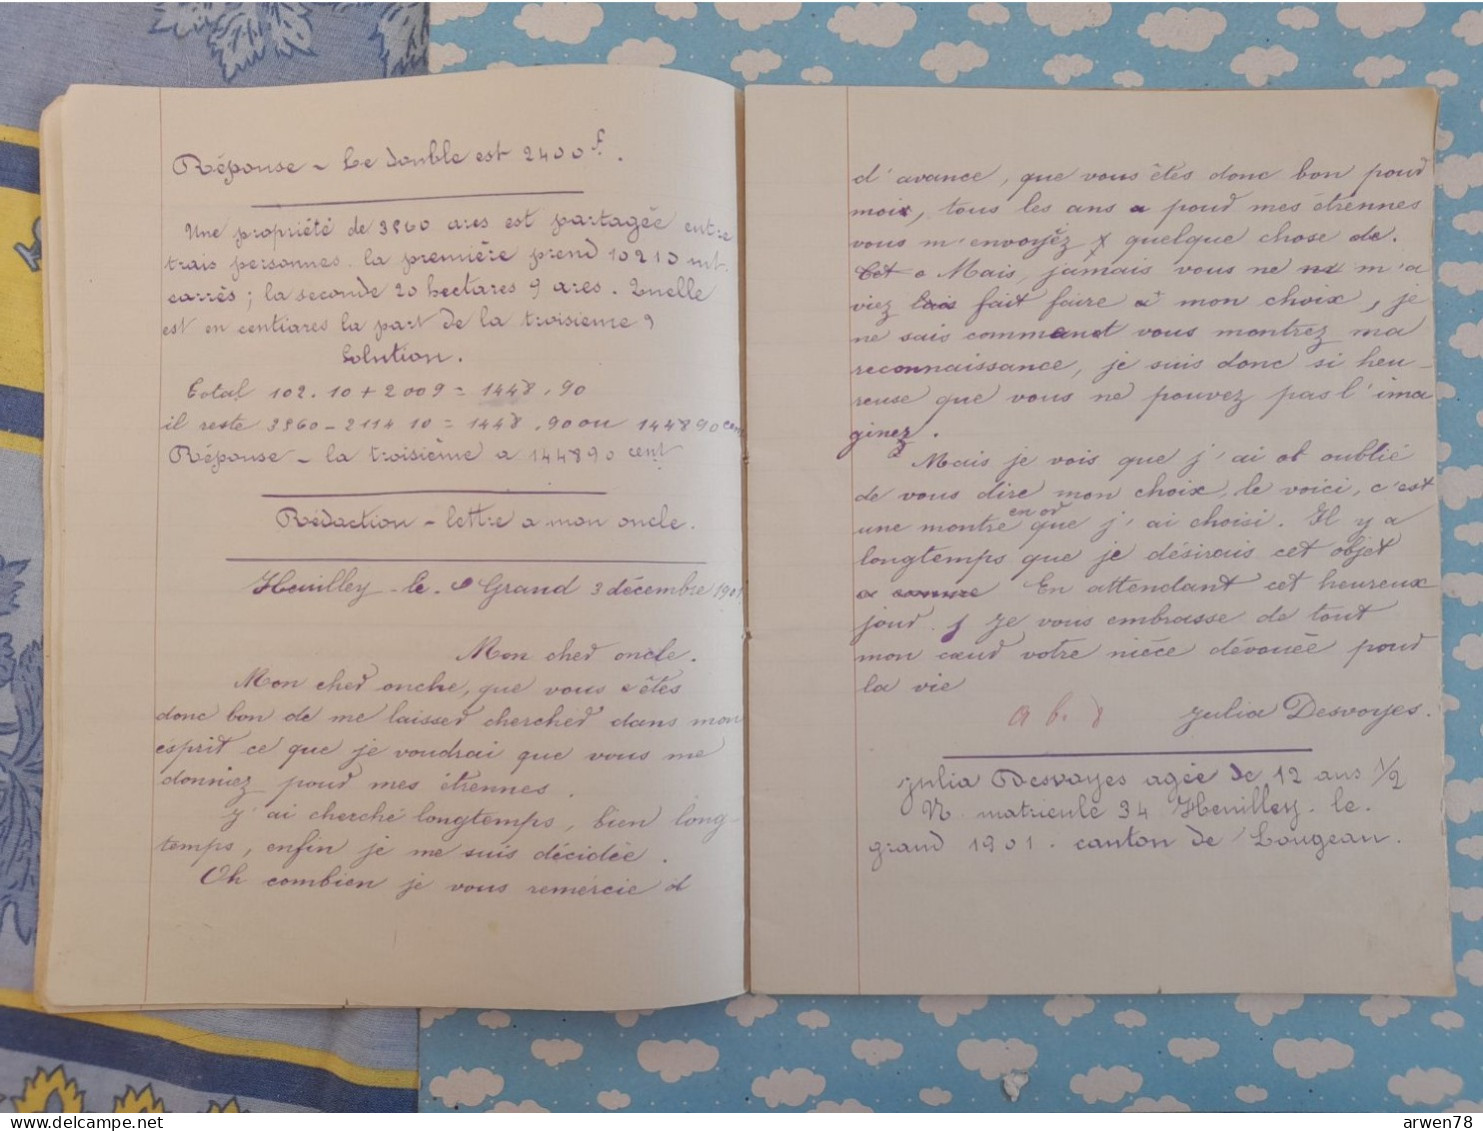 Réponse - Le double est 2400 f.
Une propriété de 3560 ares est partagée entre
trais personnes. la première prend 10210 mt
carrés ; la seconde 20 hectares 9 ares. Quelle
est en centiares la part de la troisieme ?
Solution.
Total 102.10 + 2009 =
il reste 3560 - 2111 10 = 1448.90 ou 144890 cent
Réponse - la troisième a 144890 cent
Rédaction - lettre a mon oncle.
Heuilley - le. Grand 3 décembre 1901
Mon cher oncle.
Mon cher oncle, que vous êtes
donc bon de me laisser chercher dans mon
esprit ce que je voudrai que vous me
donniez pour mes étrennes.
J'ai cherché longtemps, bien long-
temps, enfin je me suis décidée.
Oh combien je vous remércie d
d'avance, que vous êtes donc bon pour
moi, tous les ans a pour mes étrennes
vous m'envoyéz quelque chose de.
Mais, jamais vous ne m'a
viez fait faire mon choix, je
ne sais comment vous montrez ma
reconnaissance, je suis donc si heu-
reuse que vous ne pouvez pas l'ima
ginez.
Mais je vois que j'ai oublié
de vous dire mon choix, le voici, c'est
une montre en or que j'ai choisi. Il y a
longtemps que je désirais cet objet
En attendant cet heureux
jour. je vous embrasse de tout
mon cœur votre nièce dévouée pour
la vie
a b. 8 Julia Desvoyes.
Julia Desvoyes agée de 12 ans 1/2
N. matricule 34 Heuilley. le.
grand 1901. canton de Longeau.
arwen78